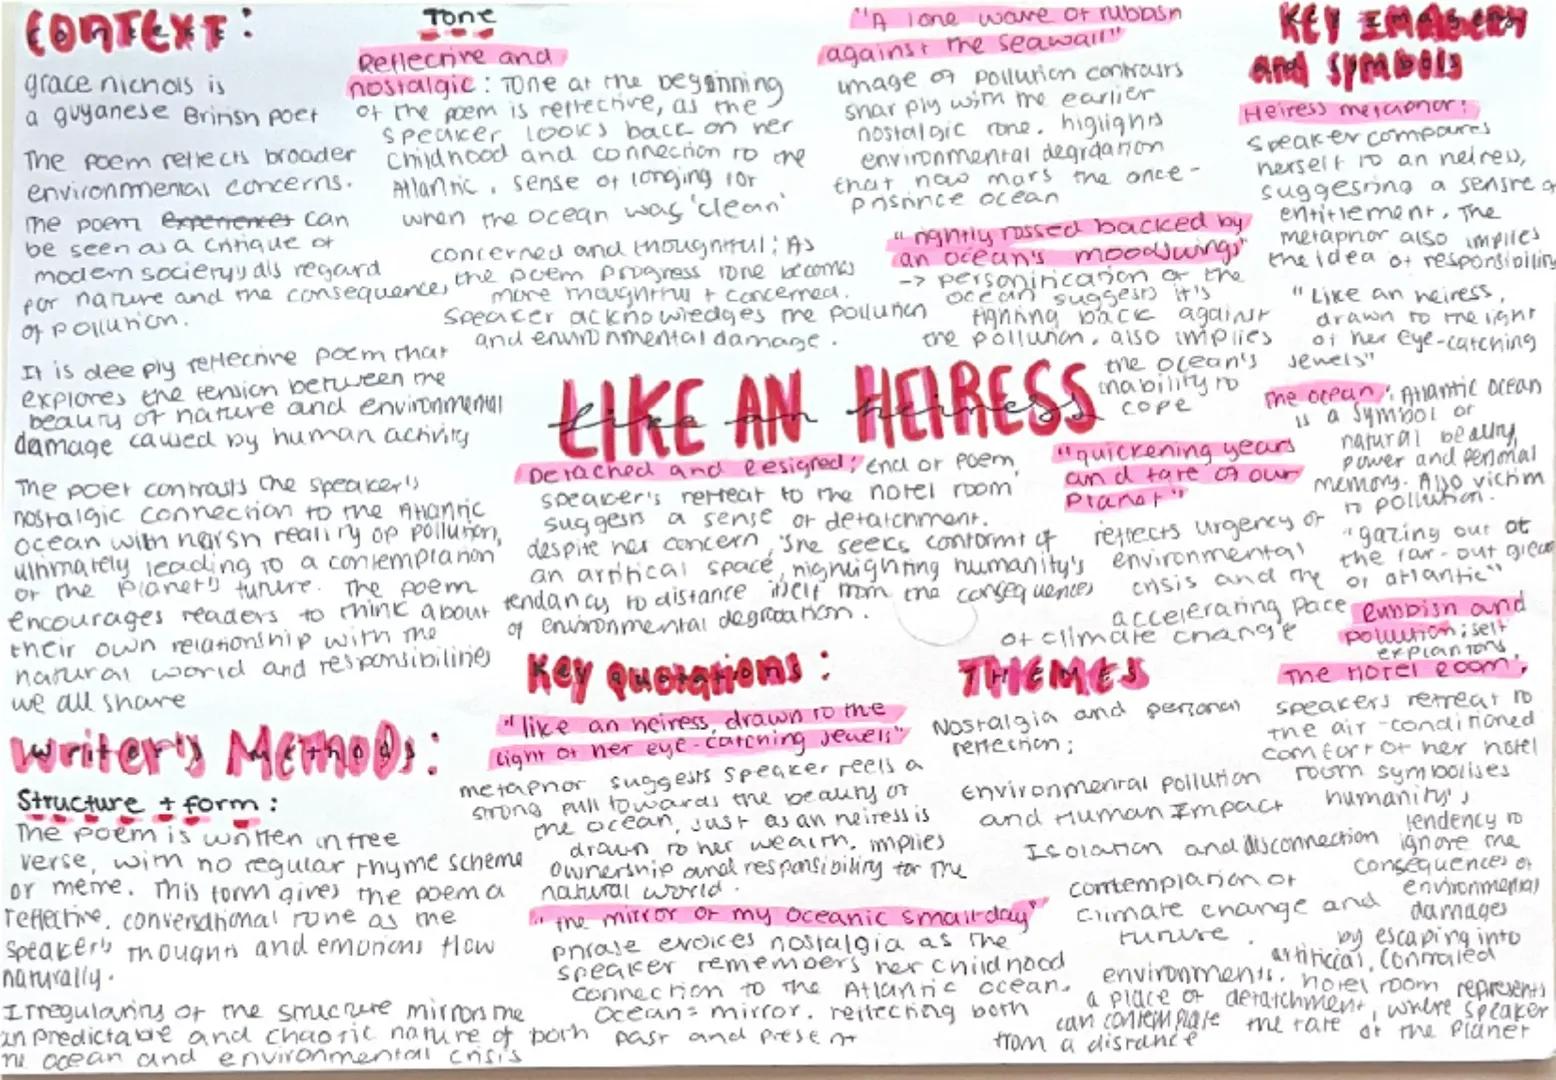 CONTEXT:
grace nichols is
a guyanese British poet
The poem reflects broader
environmental concerns.
The poem can
be seen as a critique of
modern society's dis regard
for nature and the consequences
of pollution.
It is deeply reflective poem that
explores the tension between the
beauty of nature and environmental
damage caused by human activity
The poet contrasts the speaker's
nostalgic connection to the Atlantic
ocean with harsh reality of pollution,
ultimately leading to a contemplation
of the planet's future. The poem
encourages readers to think about
their own relationship with the
natural world and responsibilities
we all share
Writer's Methods:
Structure + form:
The poem is written in free
verse, with no regular rhyme scheme
or metre. This form gives the poem a
reflective, conversational tone as the
speaker's thoughts and emotions flow
naturally.
Irregularity of the structure mirrors the
unpredictable and chaotic nature of both
the ocean and environmental crisis
Tone
Reflective and
nostalgic: Tone at the beginning
of the poem is reflective, as the
speaker looks back on her
childhood and connection to the
Atlantic, sense of longing for
when the ocean was 'clean'
concerned and thoughtful: As
the poem progress tone becomes
more thoughtful + concerned.
Speaker acknowledges the pollution
and environmental damage.
LIKE AN HEIRESS
like an heiress
Detached and Resigned: end of poem,
speaker's retreat to the hotel room
suggests a sense of detatchment.
despite her concern, she seeks comfort of
an artifical space, highlighting humanity's
tendancy to distance itself from the consequences
of environmental degradation.
Key Quotations:
"like an heiress, drawn to the
light of her eye-catching jewels"
metaphor suggests speaker feels a
strong pull towards the beauty of
the ocean, just as an heiress is
drawn to her wealth. implies
ownership and responsibility for the
natural world.
"the mirror of my oceanic small-day"
phrase evokes nostalgia as the
speaker remembers her childhood
connection to the Atlantic ocean.
Ocean = mirror, reflecting both
past and present
"A lone wave of rubbish
against the seawall"
image of pollution contrasts
sharply with the earlier
nostalgic tone. highlights
environmental degrdation
that now mars the once-
pristine ocean
"rightly tossed backed by
an ocean's moodswings"
-> personification of the
ocean suggests it's
fighting back against
the pollution, also implies
the ocean's
inability to
cope
"quickening years
and fate of our
planet"
reflects urgency of
environmental
crisis and the
accelerating pace
of climate change
THEMES
Nostalgia and personal
reflection;
environmental pollution
and Human Impact
Isolation and disconnection
contemplation of
climate change and
future.
KEY IMAGERY
and symbols
Heiress metaphor:
Speaker compares
herself to an heiress,
suggesting a sensre of
entitlement. The
metaphor also implies
the idea of responsibility
"Like an heiress,
drawn to the light
of her eye-catching
jewels"
The ocean: Atlantic ocean
is a symbol of
natural beauty,
power and personal
memory. Also victim
to pollution.
"gazing out at
the far-out gleam
of atlantic"
Rubbish and
pollution: self
explantory.
The hotel room:
speakers retreat to
the air-conditioned
comfort of her hotel
room symbolises
humanity's
tendency to
ignore the
consequences of
environmental
damages
by escaping into
artificial, controlled
environments. hotel room represents
a place of detatchment, where speaker
can contemplate the fate of the planet
from a distance